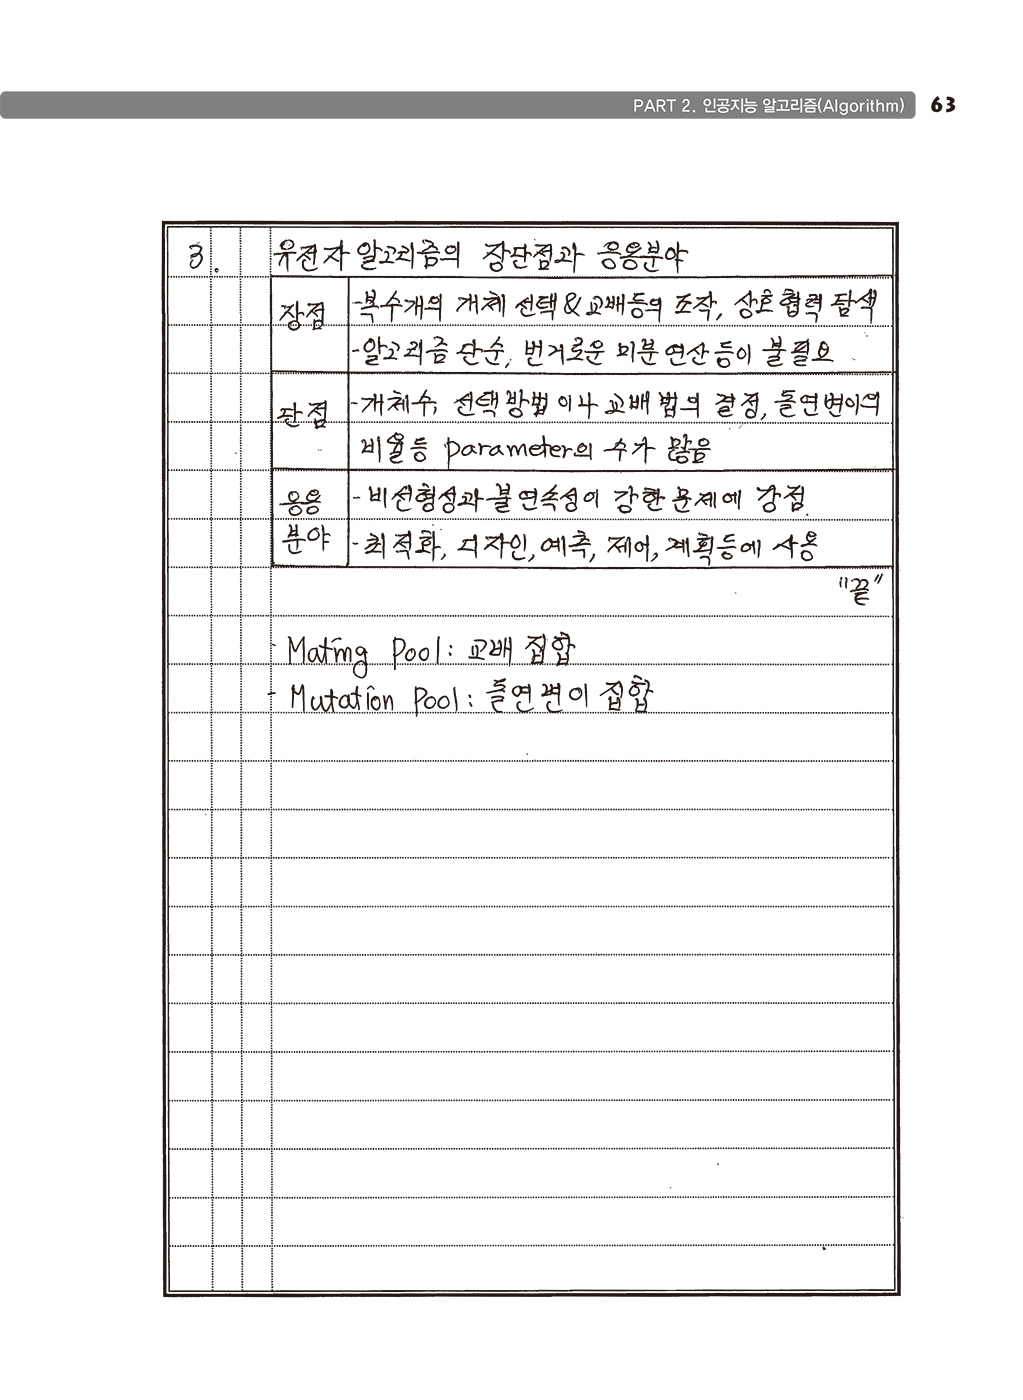 PART 2. 인공지능 알고리즘(Algorithm) 63
3. 유전자 알고리즘의 장단점과 응용분야
장점 -복수개의 개체 선택&교배등의 조작, 상호협력 탐색
-알고리즘 단순, 번거로운 미분연산등이 불필요
단점 -개체수, 선택방법이나 교배법의 결정, 돌연변이의
비율등 parameter의 수가 많음
응용 - 비선형성과 불연속성이 강한 문제에 강점.
분야 - 최적화, 디자인, 예측, 제어, 계획등에 사용
"끝"
- Mating Pool : 교배 집합
- Mutation Pool : 돌연변이 집합